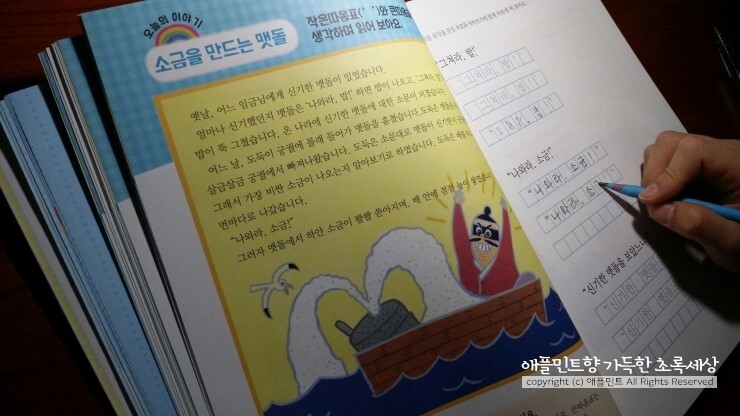 오늘의 이야기
소금을 만드는 맷돌
작은따옴표(‘ ’)와 큰따옴표
생각하며 읽어 보아요.
옛날, 어느 임금님에게 신기한 맷돌이 있었습니다.
얼마나 신기했던지 맷돌은 ‘나와라, 밥!’ 하면 밥이 나오고, ‘그쳐라, 밥!’
밥이 뚝 그쳤습니다. 온 나라에 신기한 맷돌에 대한 소문이 퍼졌습니다.
어느 날, 도둑이 궁궐에 몰래 들어가 맷돌을 훔쳤습니다. 도둑은 맷돌을
살금살금 궁궐에서 빠져나왔습니다. 도둑은 소문대로 맷돌이 신기한지
그래서 가장 비싼 소금이 나오는지 알아보기로 하였습니다. 도둑은 배를
먼바다로 나갔습니다.
“나와라, 소금!”
그러자 맷돌에서 하얀 소금이 콸콸 쏟아지며, 배 안에 점점 높이 쌓였습니다.
“그쳐라, 밥!”
“그쳐라, 밥!”
“그쳐라, 밥!”
“나와라, 소금!”
“나와라, 소금!”
“나와라, 소
“신기한 맷돌을 보았느냐
“신기한 맷돌
“신기한
애플민트향 가득한 초록세상
copyright (c) 애플민트 All Rights Reserved